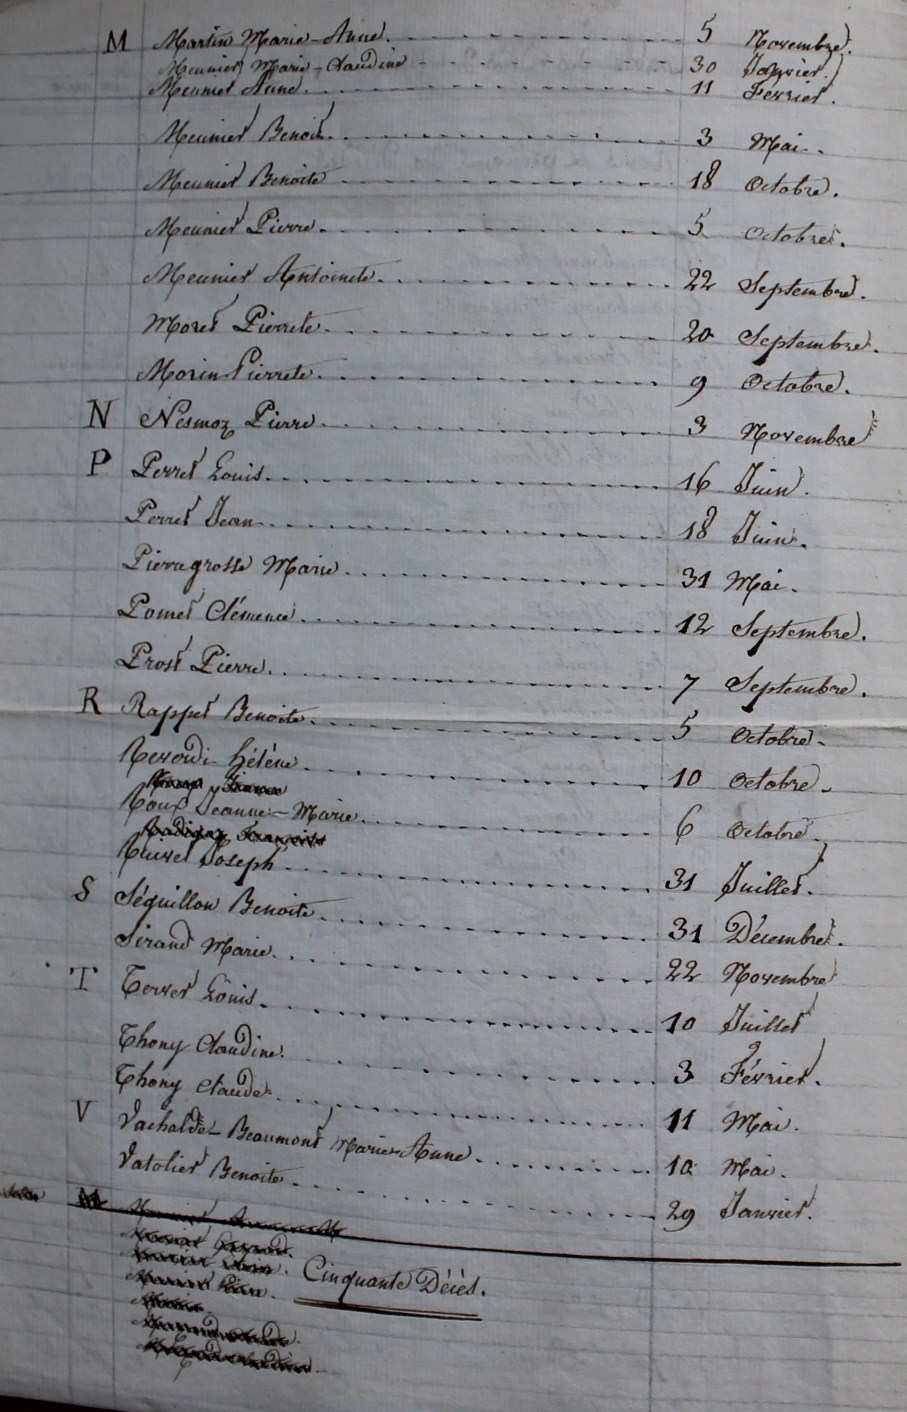 M Martin Marie-Anne. 5 Novembre.
Meunier Marie-Claudine 30 Janvier.
Meunier Anne. 11 Février.
Meunier Benoit. 3 Mai.
Meunier Benoite 18 Octobre.
Meunier Pierre. 5 Octobre.
Meunier Antoinete. 22 Septembre.
Moret Pierrete. 20 Septembre.
Morin Pierrete. 9 Octobre.
N Nesmoz Pierre. 3 Novembre
P Perret Louis. 16 Juin.
Perret Jean. 18 Juin.
Pierregrosse Marie. 31 Mai.
Pomet Clémence. 12 Septembre.
Prost Pierre. 7 Septembre.
R Rappet Benoite. 5 Octobre.
Revordi Hélène. 10 Octobre.
Roux Jeanne-Marie. 6 Octobre.
Ruivet Joseph. 31 Juillet.
S Séguillon Benoite. 31 Décembre.
Sirand Marie. 22 Novembre
T Terret Louis. 10 Juillet
Thony Claudine. 3 Février.
Thony Claude. 11 Mai.
V Vachalde-Beaumont Marie-Anne. 10 Mai.
Vatolier Benoite. 29 Janvier.
Cinquante Décès.